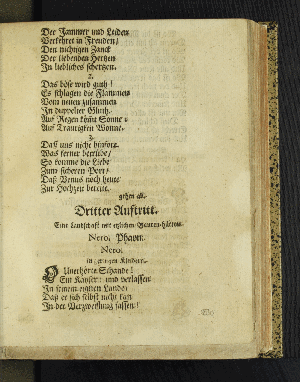 Der Jammer und Leiden
Verkehret in Freuden/
Den nichtigen Zanck
Der liebenden Hertzen
In liebliches schertzen.
2.
Das böse wird guth!
Es schlagen die Flammen
Vom neuen zusammen
In doppelter Gluth.
Auf Regen kömt Sonne/
Auf Traurigkeit Wonne.
3.
Daß uns nicht hinfort
Was ferner betrübe/
So komme die Liebe
Zum sicheren Port/
Daß Venus noch heute
Zur Hochzeit bereite.
gehen ab.
Dritter Auftritt.
Eine Landschaft mit etlichen Bauren-Hütten.
Nero. Phaon.
Nero.
in geringen Kleidern.
O Unerhörte Schande!
Ein Kayser und verlassen
In seinem eignen Lande/
Daß er sich selbst nicht kan
In der Verzweiflung fassen!